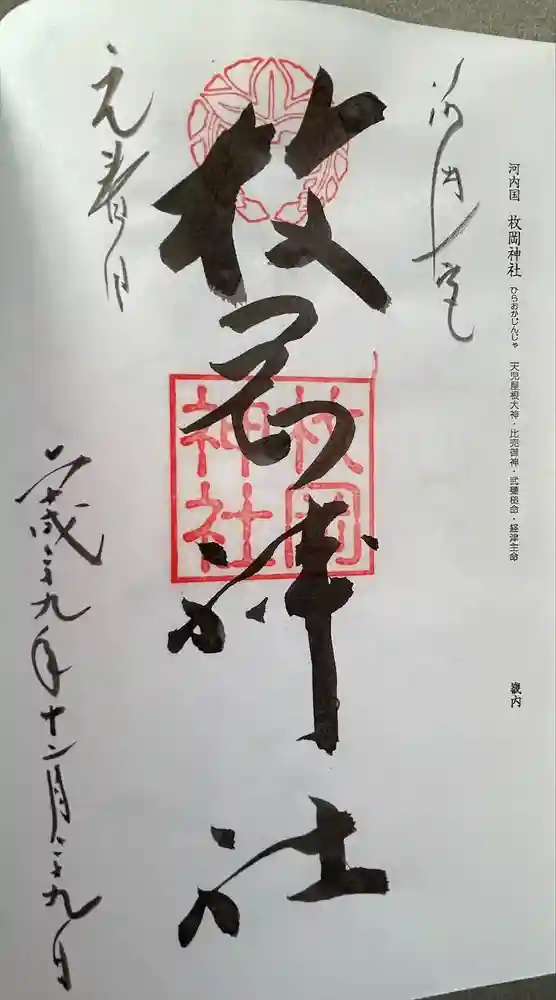 河内国 枚岡神社 ひらおかじんじゃ 天児屋根大神・比売御神・武甕槌命・経津主命 畿内
河内一宮
枚岡神社
枚岡
神社
元春日
平成二十九年十二月二十九日